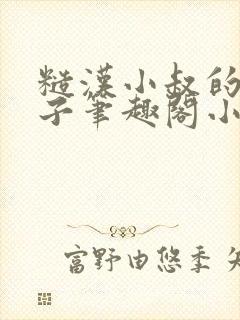 糙漢小叔的
子筆趣閣小
富野由悠季